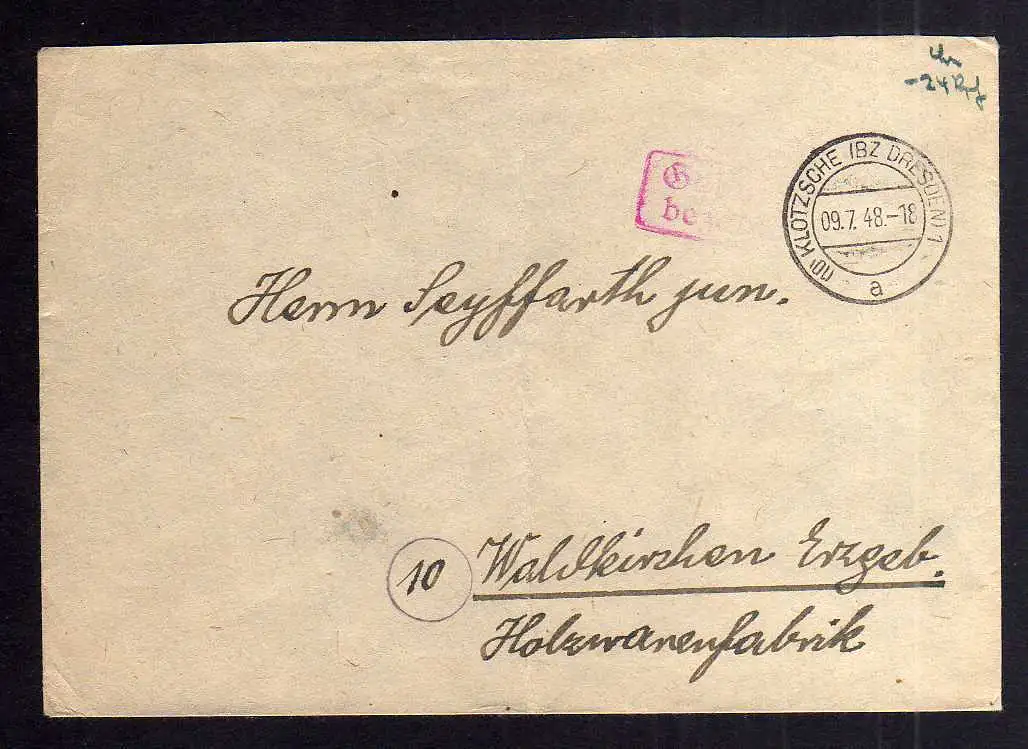 -24 Rpf
Ge
be
(10) KLOTZSCHE (BZ DRESDEN) 1
09.7.48.-18
a
Herrn Seyffarth jun.
10 Waldkirchen Erzgeb.
Holzwarenfabrik